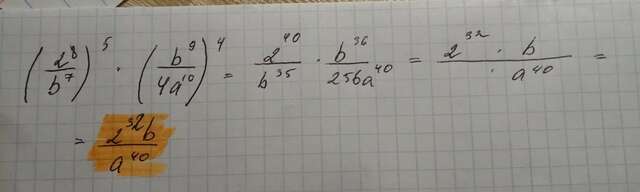 (2⁸/b⁷)⁵ · (b⁹/4a¹⁰)⁴ = 2⁴⁰/b³⁵ · b³⁶/256a⁴⁰ = 2³² · b/a⁴⁰ =
= 2³²b/a⁴⁰